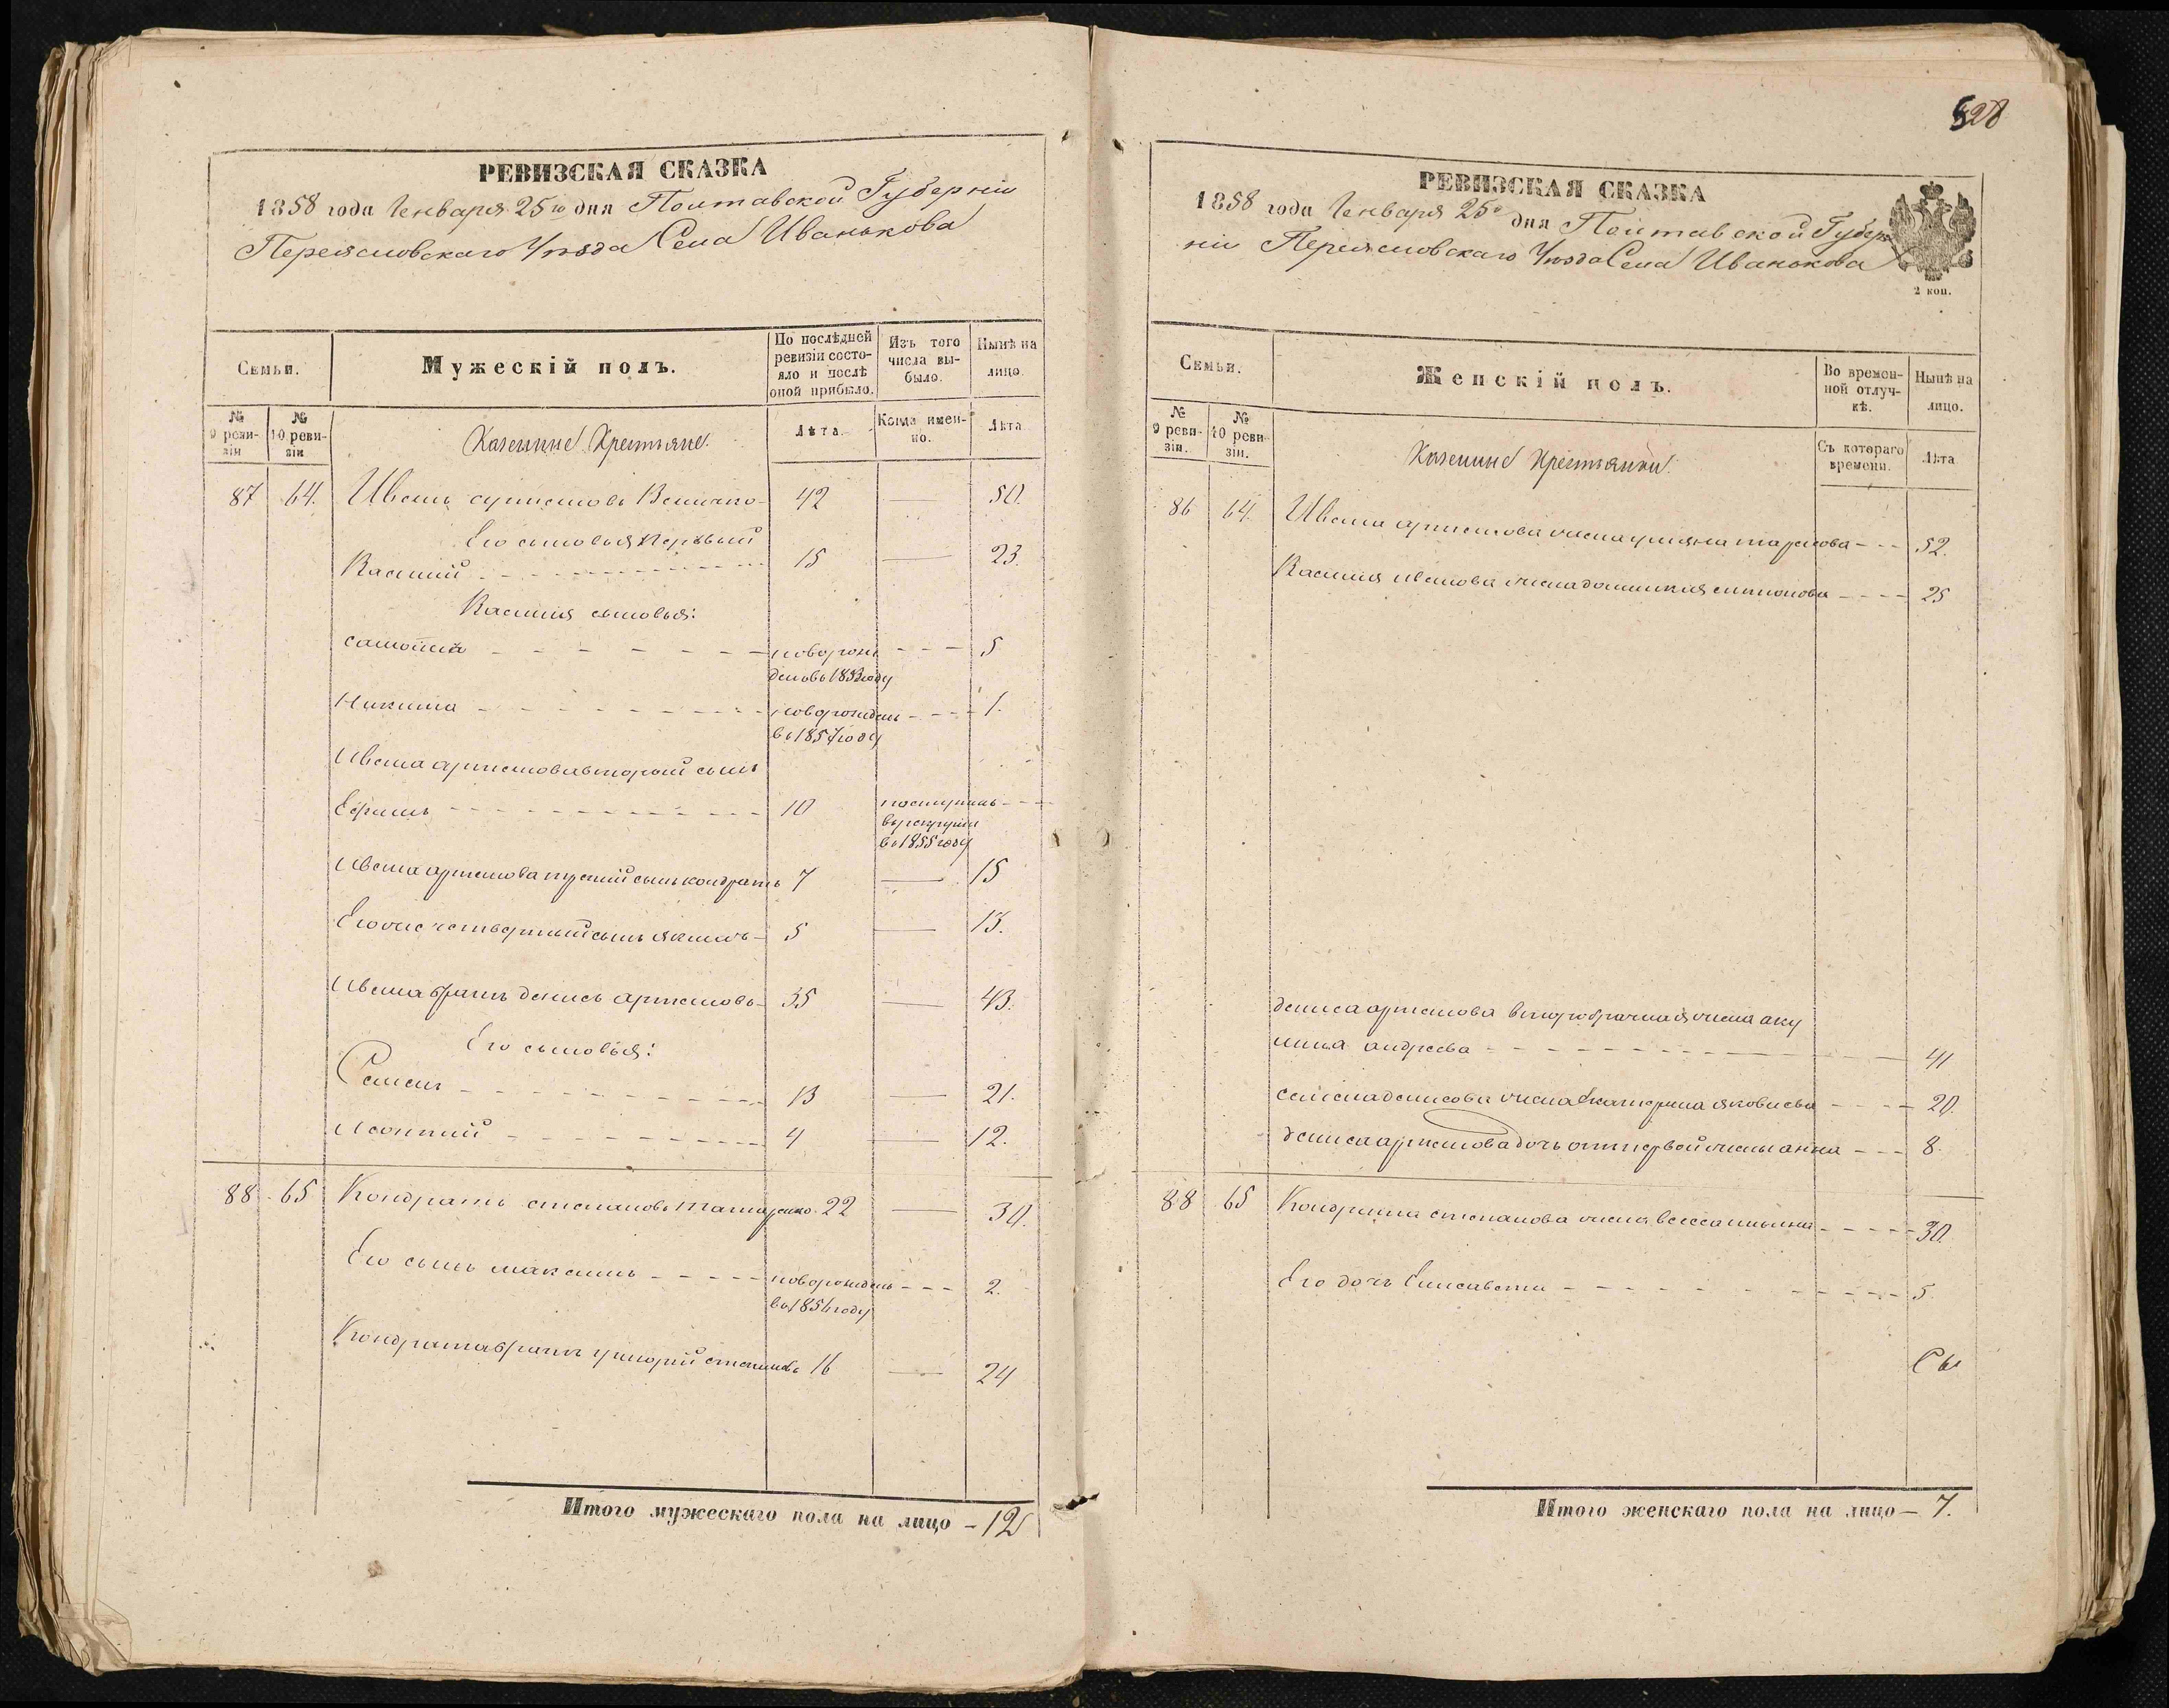 РЕВИЗСКАЯ СКАЗКА
1858 года Генваря 25го дня Полтавской Губерніи
Переясловскаго Уѣзда Села Иванькова
Семьи.
Мужескій полъ.
По послѣдней ревизіи состояло и послѣ оной прибыло.
Изъ того числа выбыло.
Нынѣ на лицо.
№ 9 ревизіи
№ 10 ревизіи
Казенные Крестьяне.
Лѣта.
Когда именно.
Лѣта
87 64. Иванъ Артемовъ Величко 42 — 50.
Его сыновья Первый
Василий 15 — 23.
Василия сыновья:
самойла новорож 5
денъ въ 1853 году
Никита новорожденъ 1.
въ 1857 году
Ивана артемова второй сынъ
Ефимъ 10 поступилъ
въ рекруты
въ 1855 году
Ивана артемова третий сынъ кондратъ 7 — 15
Его же четвертый сынъ якимъ 5 — 13.
Ивана братъ денисъ артемовъ 35 — 43.
Его сыновья:
Семенъ 13 — 21.
Леонтий 4 — 12.
88 65 Кондратъ степановъ Татаренко 22 — 30.
Его сынъ максимъ новорожденъ 2.
въ 1856 году
Кондрата братъ григорий степановъ 16 — 24
Итого мужескаго пола на лицо — 12
528
РЕВИЗСКАЯ СКАЗКА
1858 года Генваря 25го дня Полтавской Губер
ніи Переясловскаго Уѣзда Села Иванькова
2 коп.
Семьи.
Женскій полъ.
Во временной отлучкѣ.
Нынѣ на лицо.
№ 9 ревизіи.
№ 10 ревизіи.
Казенные Крестьянки.
Съ котораго времени.
Лѣта
86 64. Ивана артемова жена ульяна тарасова 52.
Василия иванова жена домникия 25
дениса артемова второбрачная жена аку
лина андреева 41
семена денисова жена Екатерина яковлева 20.
дениса артемова дочь отъ первой жены анна 8.
88 65 Кондрата степанова жена васса 30.
Его дочь Елисавета 5.
Итого женскаго пола на лицо — 7.